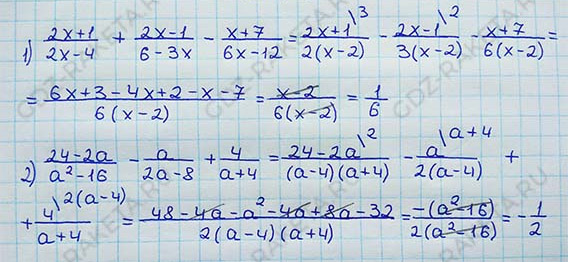 1) \frac{2x+1}{2x-4} + \frac{2x-1}{6-3x} - \frac{x+7}{6x-12} = \frac{2x+1^{\backslash 3}}{2(x-2)} - \frac{2x-1^{\backslash 2}}{3(x-2)} - \frac{x+7}{6(x-2)} =
= \frac{6x+3-4x+2-x-7}{6(x-2)} = \frac{x-2}{6(x-2)} = \frac{1}{6}
2) \frac{24-2a}{a^2-16} - \frac{a}{2a-8} + \frac{4}{a+4} = \frac{24-2a^{\backslash 2}}{(a-4)(a+4)} - \frac{a^{\backslash a+4}}{2(a-4)} +
+ \frac{4^{\backslash 2(a-4)}}{a+4} = \frac{48-4a-a^2-4a+8a-32}{2(a-4)(a+4)} = \frac{-(a^2-16)}{2(a^2-16)} = -\frac{1}{2}
GDZ-RAKETA.RU